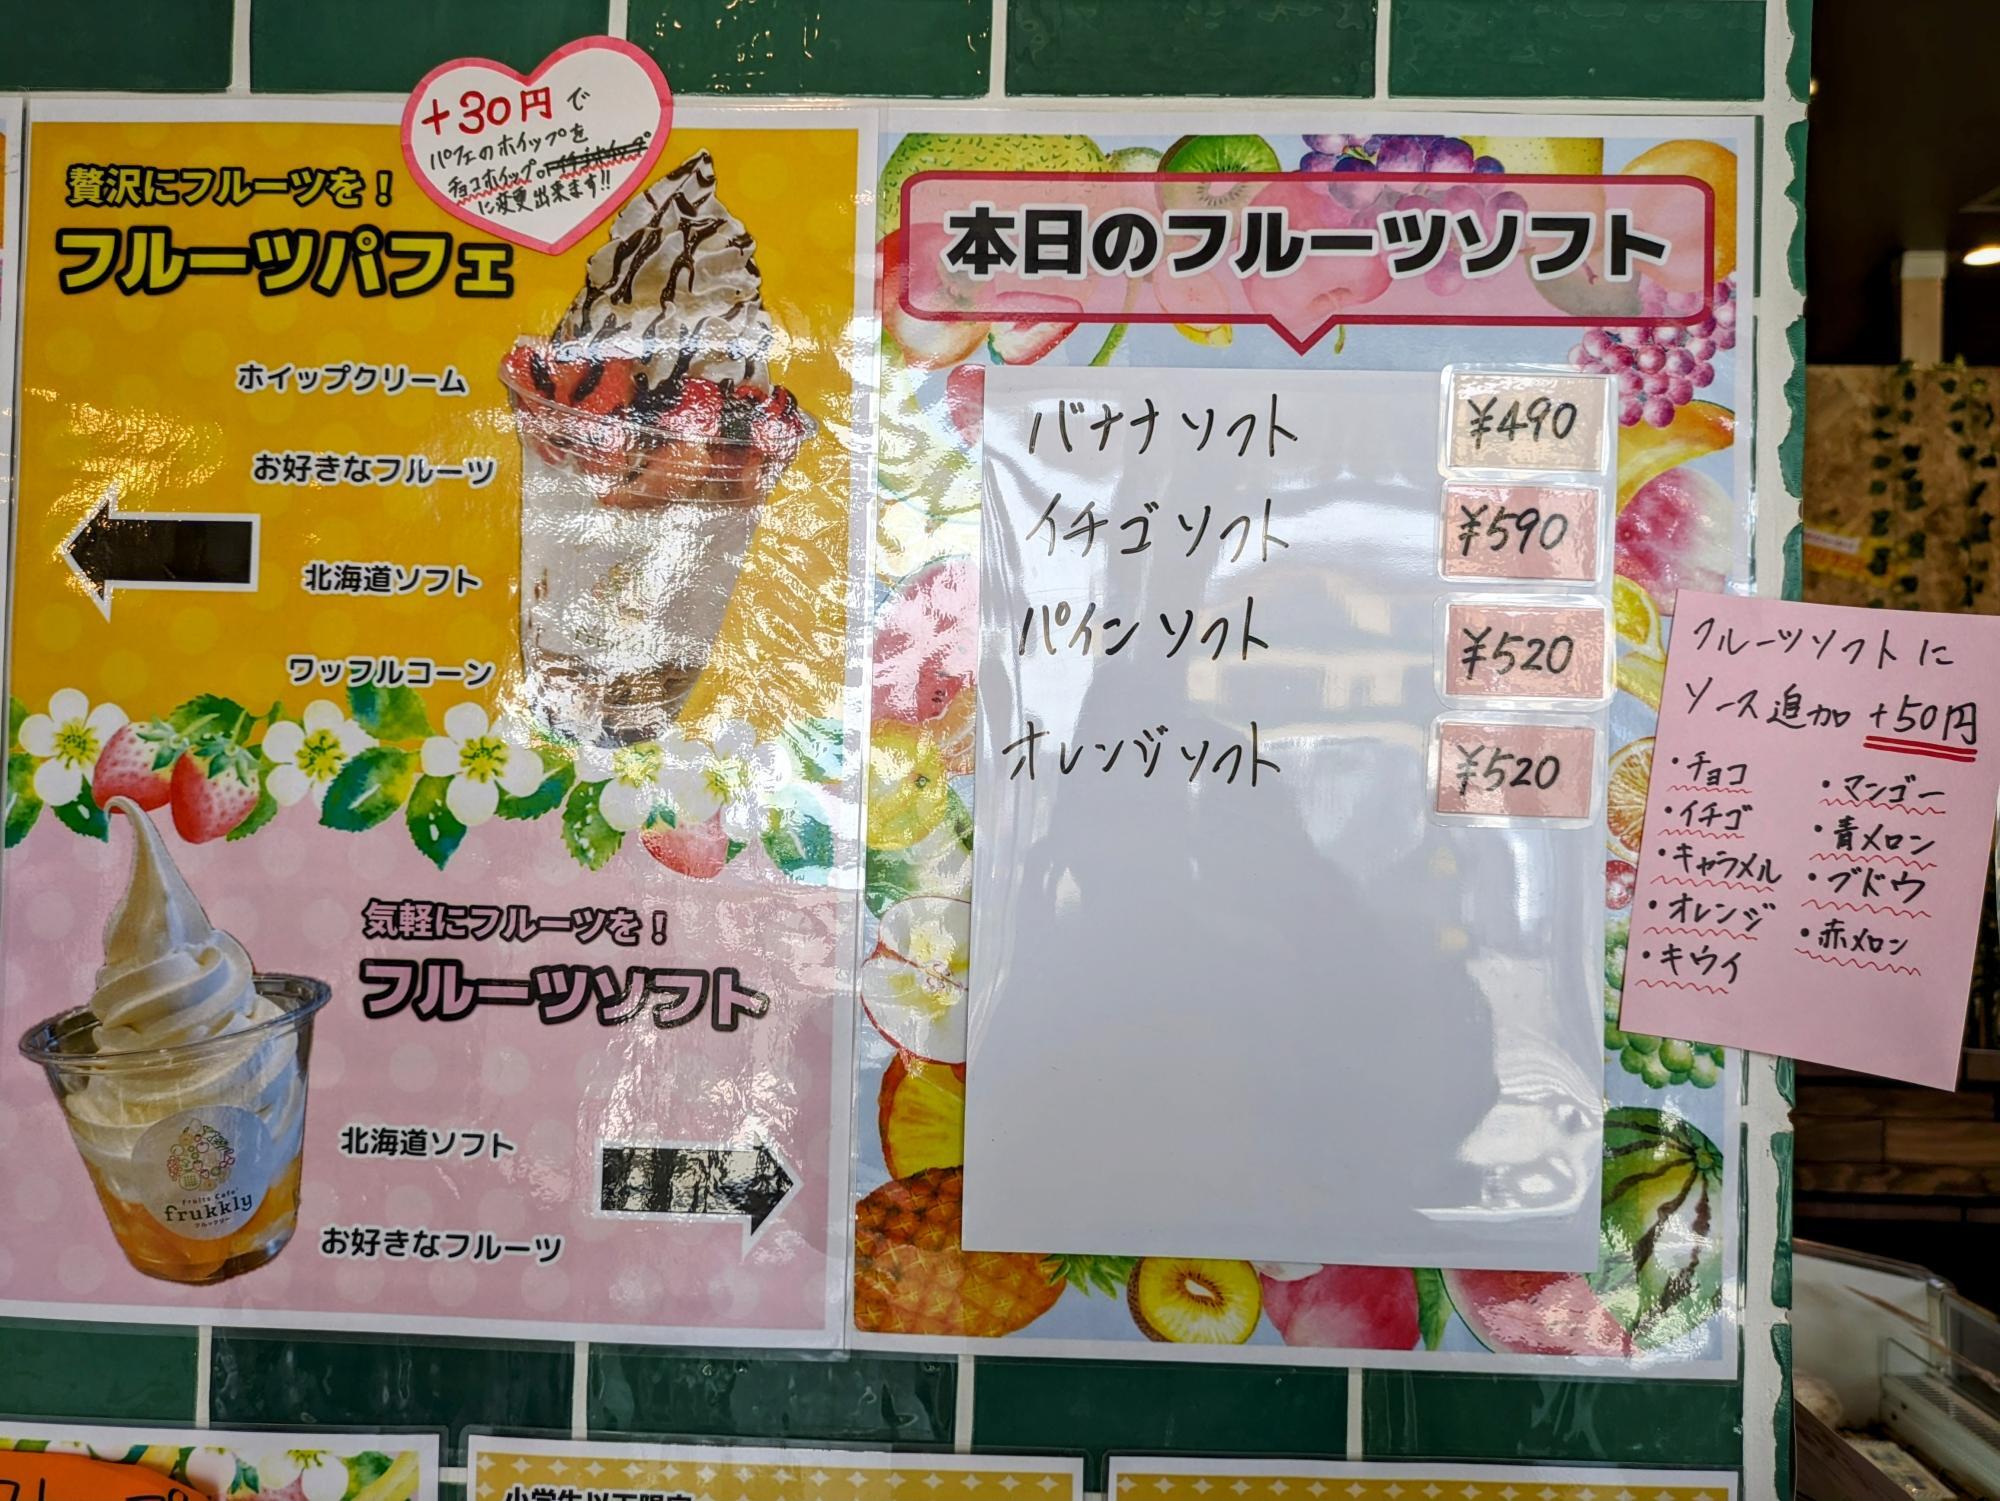 +30円で
パフェのホイップを
チョコホイップor
に変更出来ます!!
贅沢にフルーツを！
フルーツパフェ
ホイップクリーム
お好きなフルーツ
北海道ソフト
ワッフルコーン
気軽にフルーツを！
フルーツソフト
北海道ソフト
お好きなフルーツ
Fruits Cafe
frukkly
フルックリー
本日のフルーツソフト
バナナソフト ¥490
イチゴソフト ¥590
パインソフト ¥520
オレンジソフト ¥520
フルーツソフトに
ソース追加 +50円
・チョコ
・イチゴ
・キャラメル
・オレンジ
・キウイ
・マンゴー
・青メロン
・ブドウ
・赤メロン
小学生以下限定